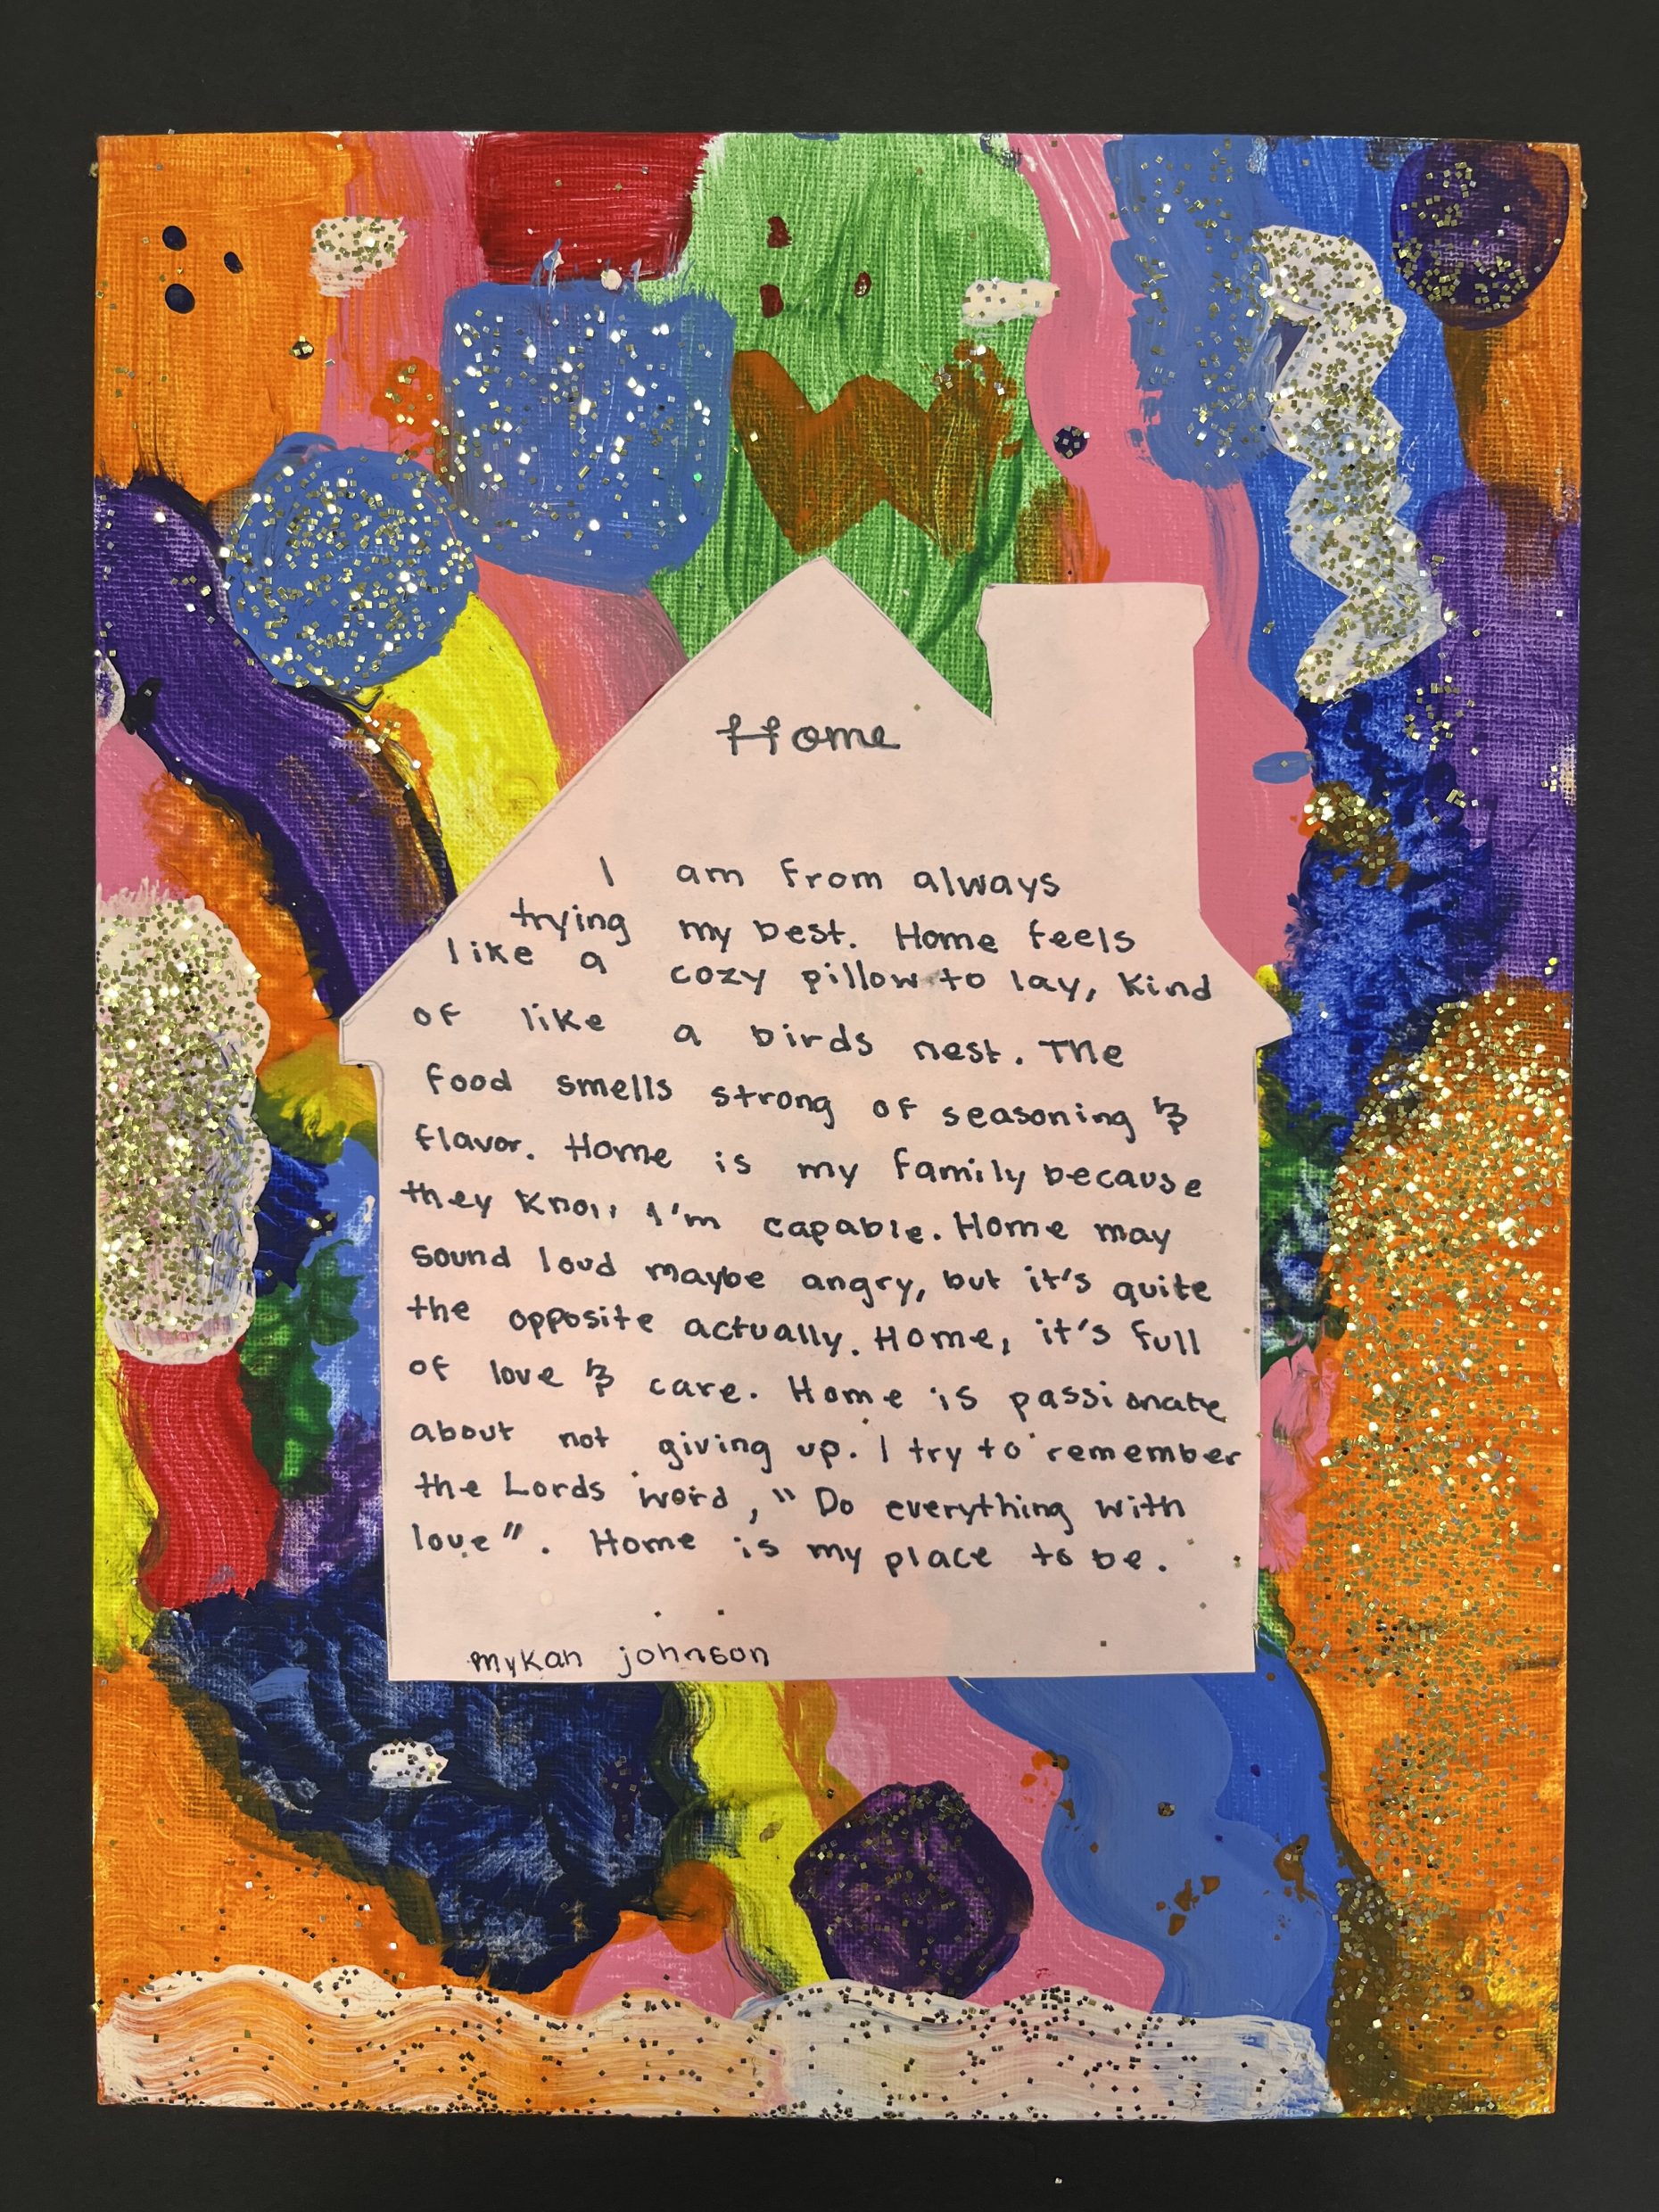 Home
I am from always
trying my best. Home feels
like a cozy pillow to lay, kind
of like a birds nest. The
food smells strong of seasoning &
flavor. Home is my family because
they know I'm capable. Home may
sound loud maybe angry, but it's quite
the opposite actually. Home, it's full
of love & care. Home is passionate
about not giving up. I try to remember
the Lords word, "Do everything with
love". Home is my place to be.
Mykah johnson